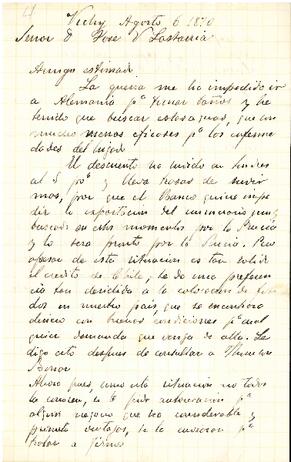 Vichy Agosto 6 1870
Señor D José V Lastarria
Amigo estimado,
La guerra me ha impedido ir
a Alemania pª tomar baños y he
tenido que buscar estas aguas, que son
mucho menos eficaces pª las enferme
dades del hígado
El descuento ha subido en Londres
al 5 p% y lleva trazas de subir
mas, por que el Banco quiere impe
dir la exportacion del numerario
buscado en estos momentos por la Francia
y lo sera pronto por la Prusia. Pero
apesar de esta situacion es tan solido
el credito de Chile, y de una preferen
cia tan decidida a la colocacion de fon
dos en nuestro pais, que se encontrara
dinero con buenas condiciones pª cual
quier demanda que venga de alla. Le
digo esto despues de consultar a
Ahora pues, como esta situacion no todos
la conocen, si le pide autorizacion pª
algun negocio que sea considerable y
ventajas, se le autorice pª
tratar a firme